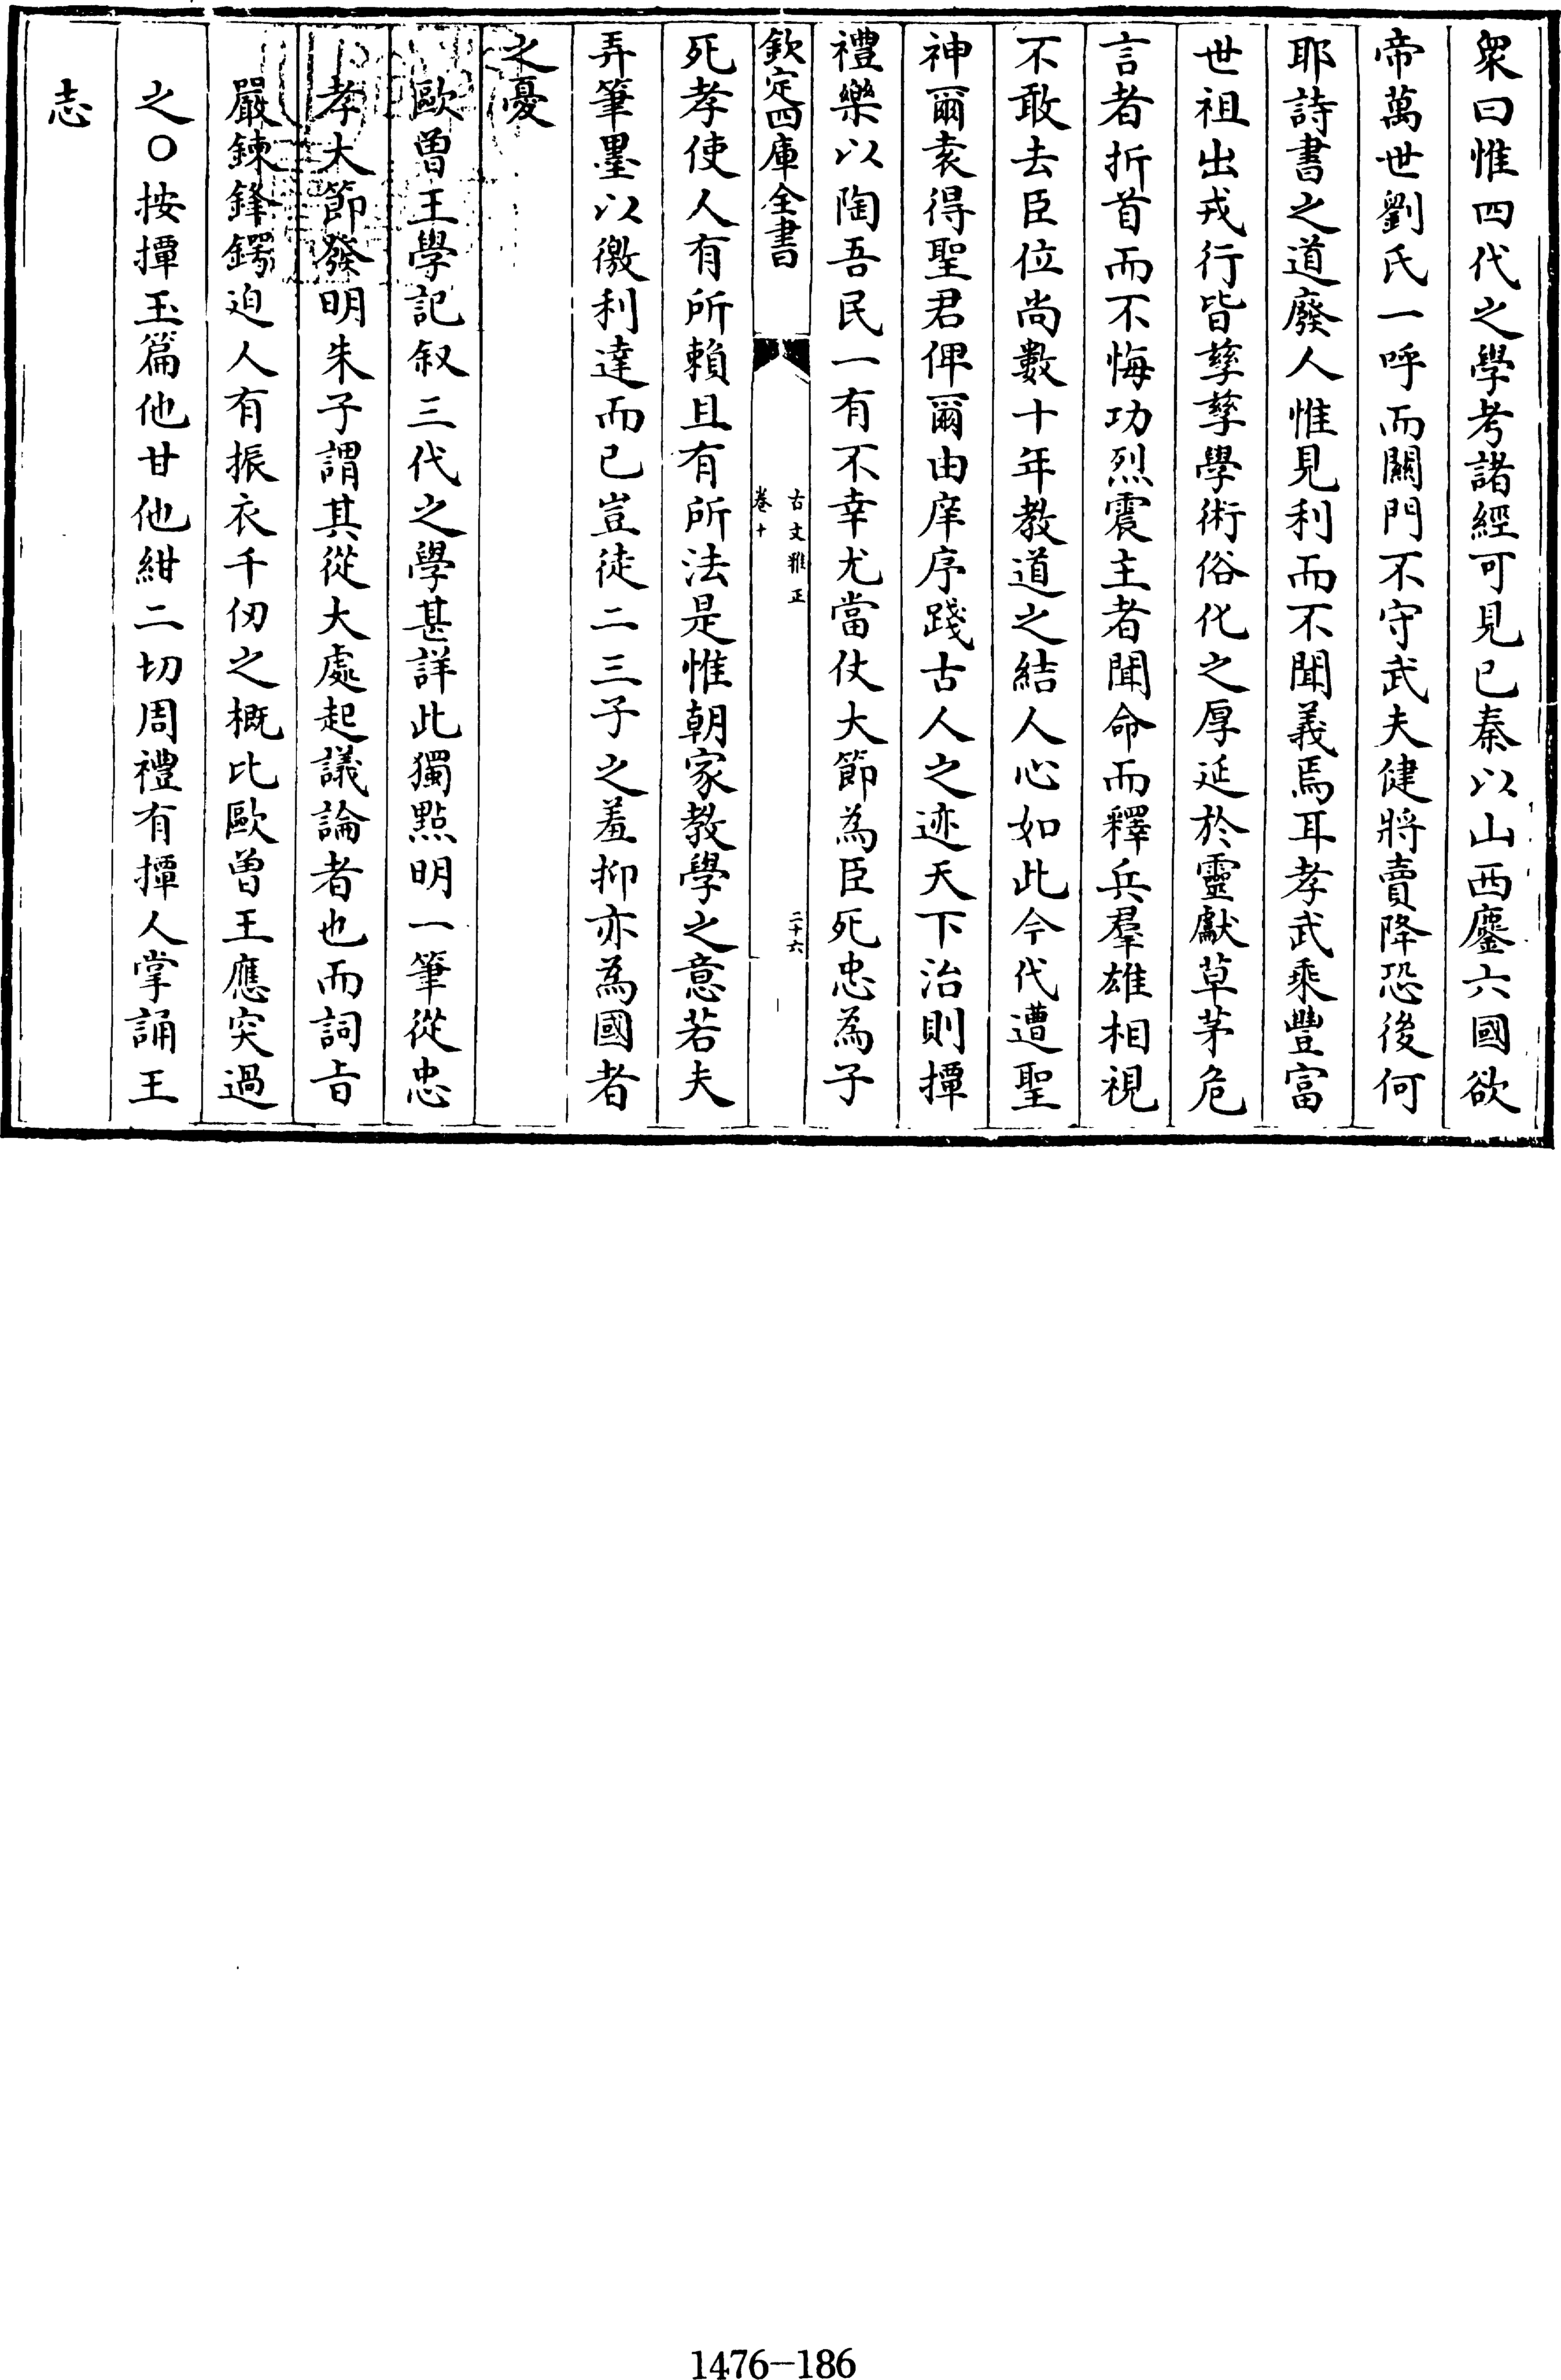 衆曰惟四代之學考諸經可見已秦以山西鏖六國欲
帝萬世劉氏一呼而關門不守武夫健將賣降恐後何
耶詩書之道廢人惟見利而不聞義焉耳孝武乘豐富
世祖出戎行皆孳孳學術俗化之厚延於靈獻草茅危
言者折首而不悔功烈震主者聞命而釋兵羣雄相視
不敢去臣位尚數十年教道之結人心如此今代遭聖
神爾袁得聖君俾爾由庠序踐古人之迹天下治則撢
禮樂以陶吾民一有不幸尤當仗大節為臣死忠為子
欽定四庫全書
古文雅正
卷十
二十六
死孝使人有所賴且有所法是惟朝家教學之意若夫
弄筆墨以徼利達而已豈徒二三子之羞抑亦為國者
之憂
歐曾王學記叙三代之學甚詳此獨㸃明一筆從忠
孝大節發明朱子謂其從大處起議論者也而詞㫖
嚴鍊鋒鍔迫人有振衣千仞之概比歐曾王應突過
之○按撢玉篇他甘他紺二切周禮有撢人掌誦王
志
1476-186